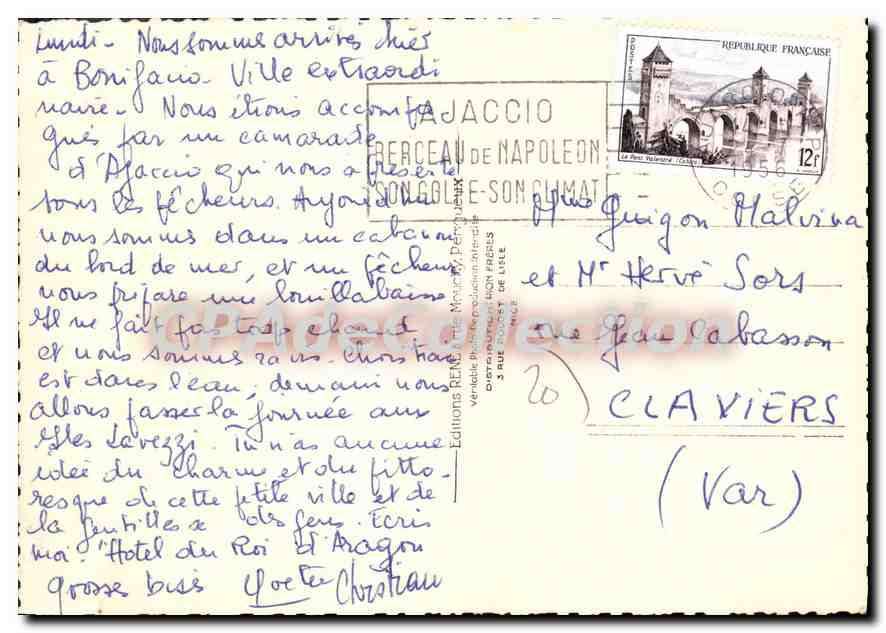 Lundi - Nous sommes arrivés hier
à Bonifacio - Ville extraordi
naire - Nous étions accompa
gnés par un camarade
d'Ajaccio qui nous a présenté
tous les pêcheurs. Aujourd'hui
nous sommes dans un cabanon
du bord de mer, et un pêcheur
nous prépare une bouillabaisse
Il ne fait pas trop chaud
et nous sommes ravis. Christian
est dans l'eau, demain nous
allons passer la journée aux
Iles Lavezzi. Tu n'as aucune
idée du charme et du pitto-
resque de cette petite ville et de
la gentillesse des gens. Ecris
moi. "Hotel du Roi d'Aragon
grosses bises Yvette Christian
AJACCIO
BERCEAU DE NAPOLEON
SON GOLFE - SON CLIMAT
POSTES
REPUBLIQUE FRANÇAISE
Le Pont Valentré (Cahors)
12f
1956
CORSE
Editions RENE
Périgueux
Véritable Photo. Reproduction interdite
DISTRIBUTION: MON FRÈRES
3 RUE ROUGET DE L'ISLE
NICE
Mme Guigon Malvina
et Mr Hervé Sors
rue Jean Cabasson
CLAVIERS
(Var)
20
CPA De Collection